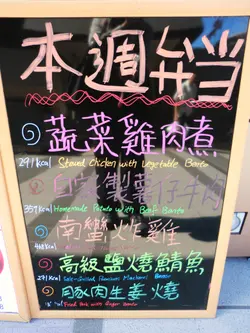 本週弁当
蔬菜雞肉煮
291kcal Stewed Chicken with Vegetable Bento
自家製薯仔牛肉
357kcal Homemade Potato with Beef Bento
南蠻炸雞
高級鹽燒鯖魚
Salt-Grilled Premium Mackerel
豚肉生姜燒
Fried Pork with Ginger Bento